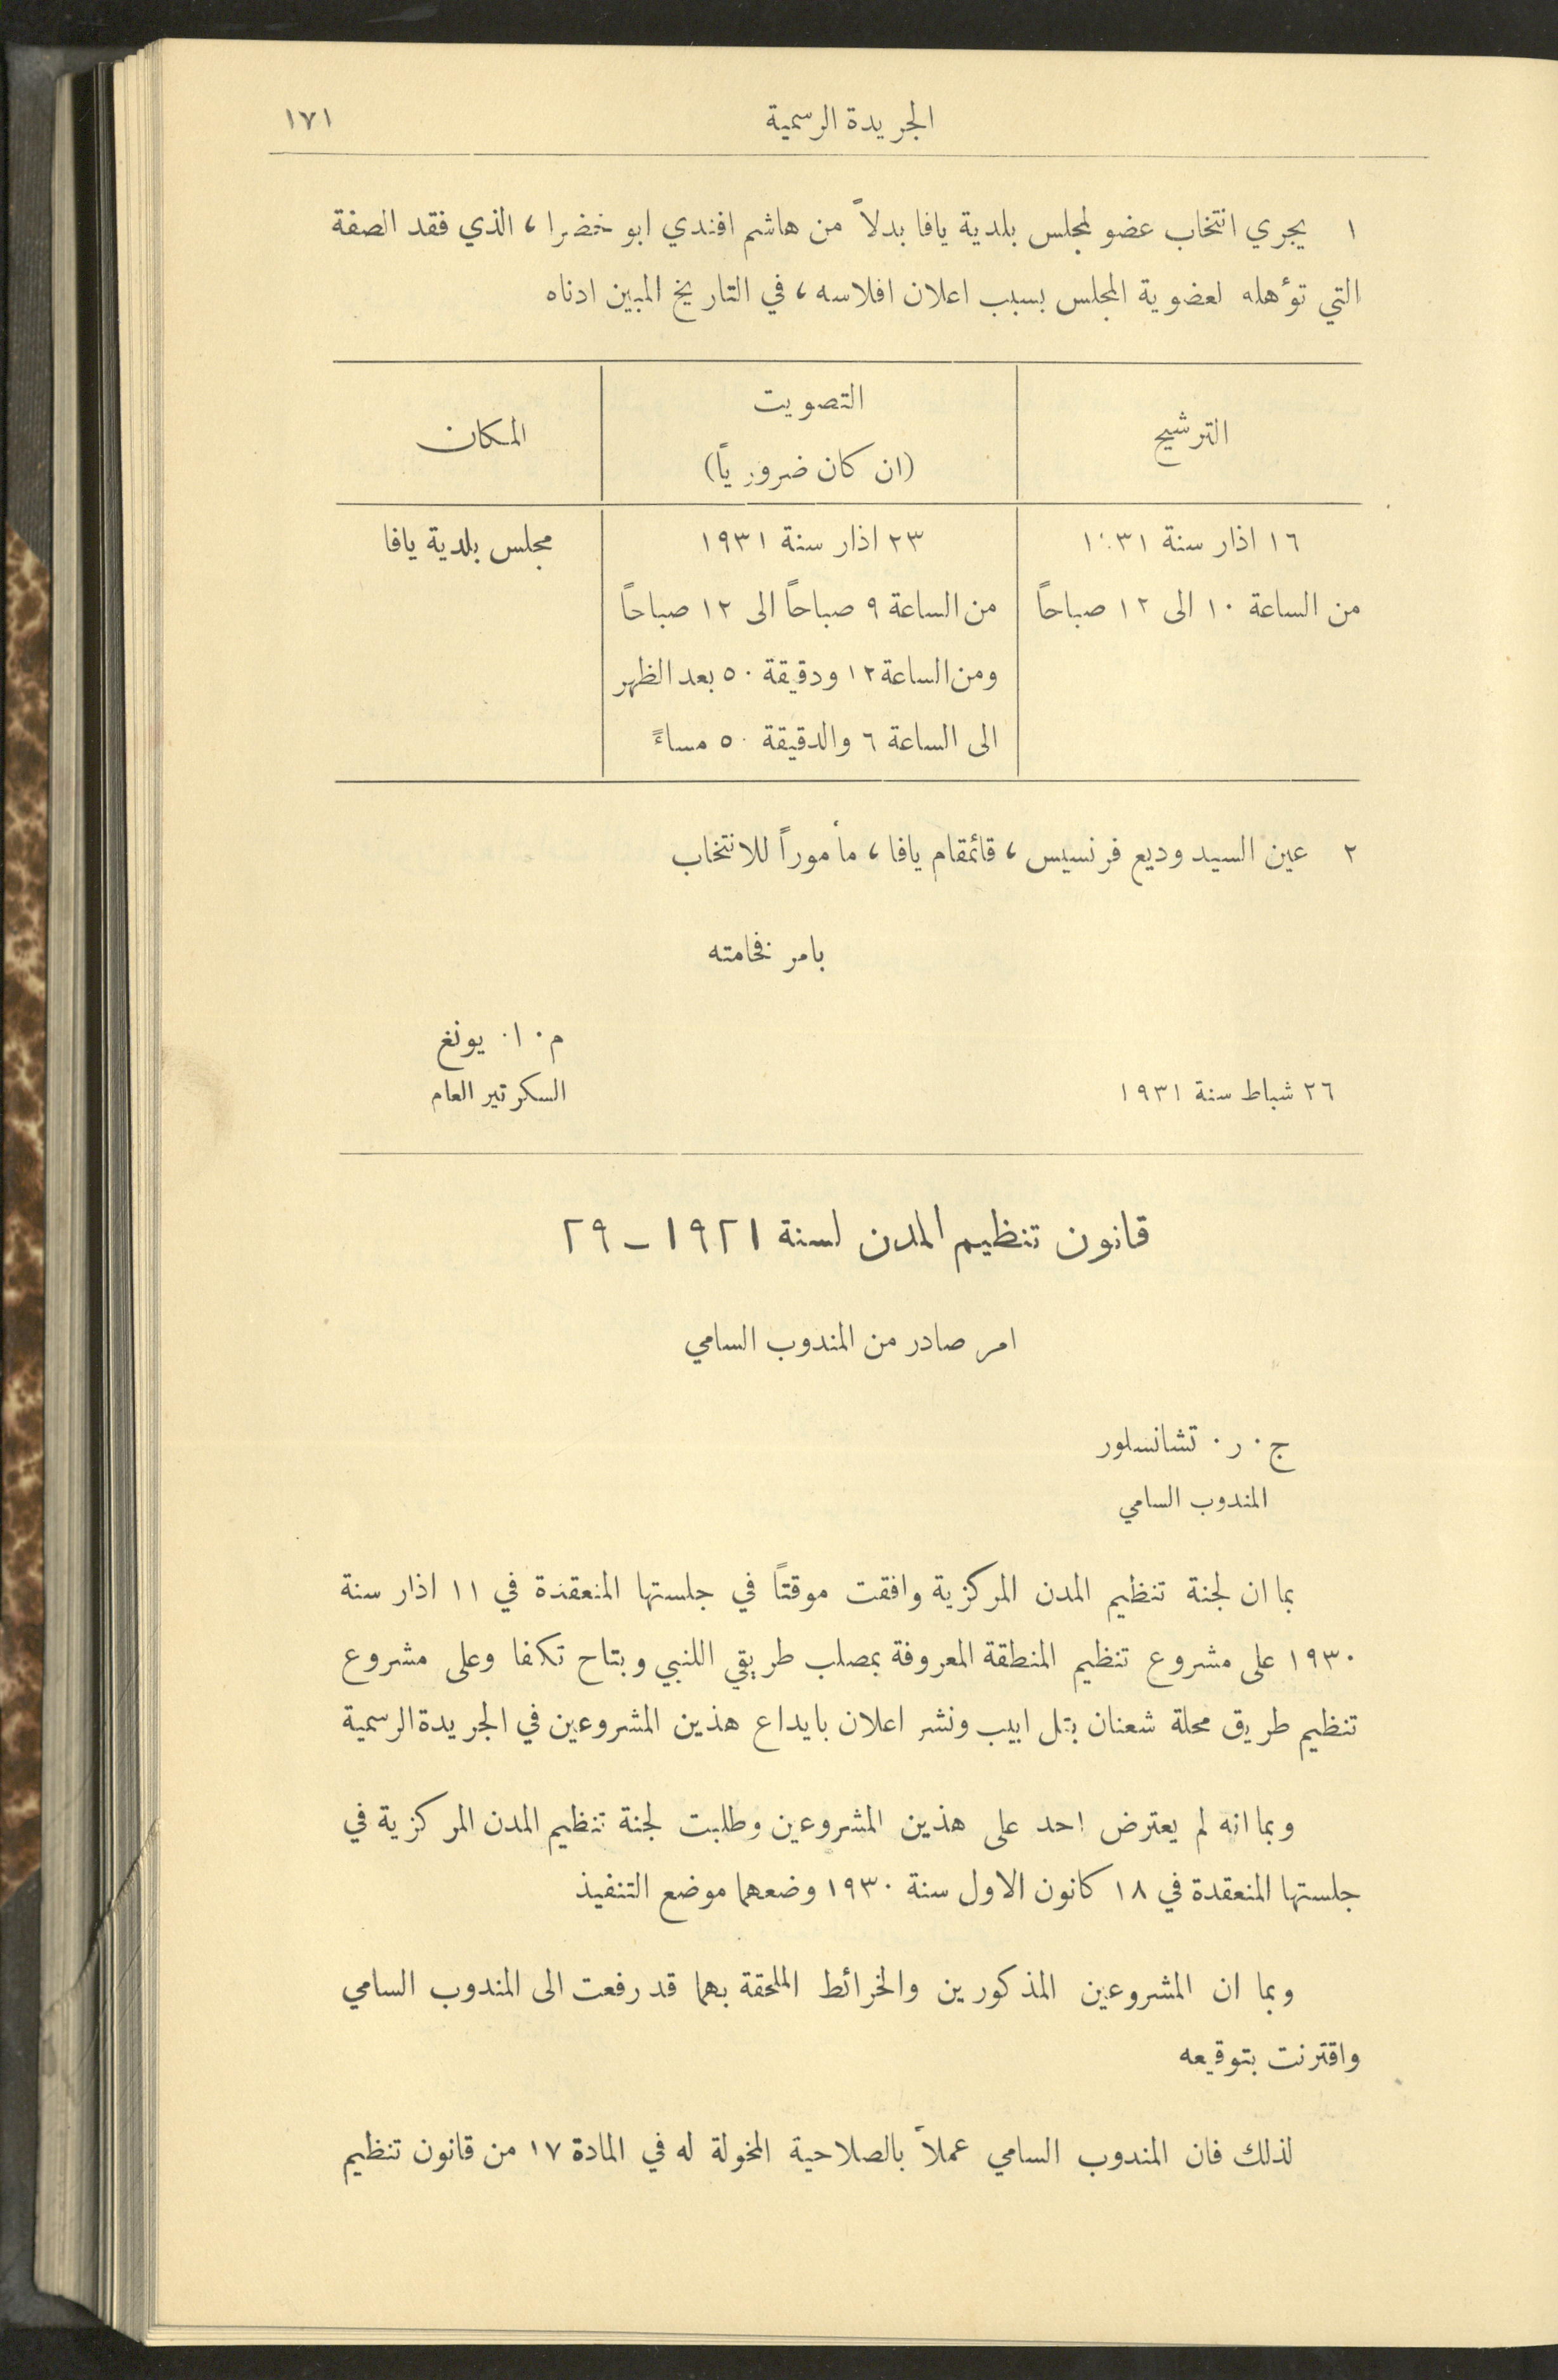 الجريدة الرسمية ١٧١
١ يجري انتخاب عضو لمجلس بلدية يافا بدلاً من هاشم افندي ابو خضرا، الذي فقد الصفة
التي تؤهله لعضوية المجلس بسبب اعلان افلاسه، في التاريخ المبين ادناه
الترشيح
التصويت
(ان كان ضرورياً)
المكان
١٦ اذار سنة ١٩٣١
من الساعة ١٠ الى ١٢ صباحاً
٢٣ اذار سنة ١٩٣١
من الساعة ٩ صباحاً الى ١٢ صباحاً
ومن الساعة ١٢ ودقيقة ٥٠ بعد الظهر
الى الساعة ٦ والدقيقة ٥٠ مساءً
مجلس بلدية يافا
٢ عين السيد وديع فرنسيس، قائمقام يافا، مأموراً للانتخاب
بامر فخامته
م. ا. يونغ
٢٦ شباط سنة ١٩٣١ السكرتير العام
قانون تنظيم المدن لسنة ١٩٢١ ـ ٢٩
امر صادر من المندوب السامي
ج. ر. تشانسلور
المندوب السامي
بما ان لجنة تنظيم المدن المركزية وافقت موقتاً في جلستها المنعقدة في ١١ اذار سنة
١٩٣٠ على مشروع تنظيم المنطقة المعروفة بمصلب طريقي اللنبي وبتاح تكفا وعلى مشروع
تنظيم طريق محلة شعنان بتل ابيب ونشر اعلان بايداع هذين المشروعين في الجريدة الرسمية
وبما انه لم يعترض احد على هذين المشروعين وطلبت لجنة تنظيم المدن المركزية في
جلستها المنعقدة في ١٨ كانون الاول سنة ١٩٣٠ وضعهما موضع التنفيذ
وبما ان المشروعين المذكورين والخرائط الملحقة بهما قد رفعت الى المندوب السامي
واقترنت بتوقيعه
لذلك فان المندوب السامي عملاً بالصلاحية المخولة له في المادة ١٧ من قانون تنظيم